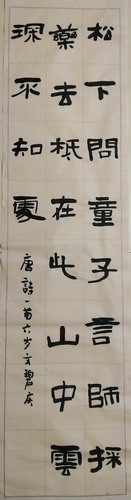 松下問童子言師採
藥去祗在此山中雲
深不知處
唐詩一首六少文碧庆